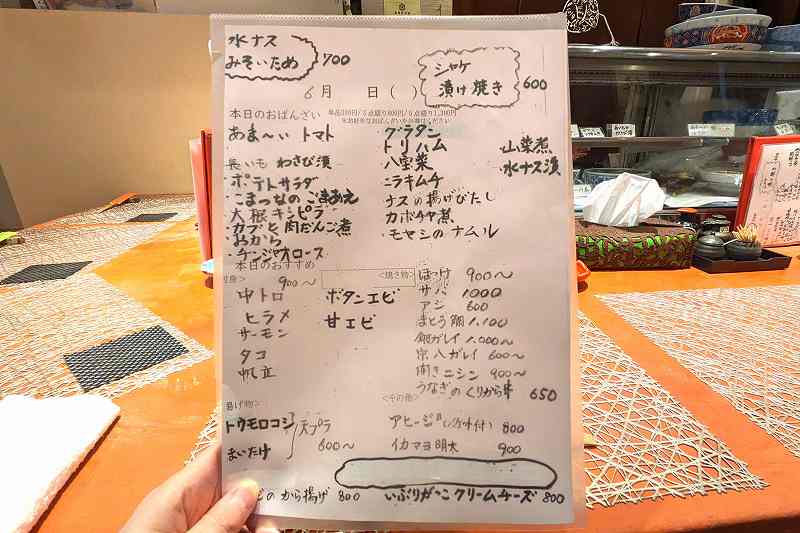 水ナス
みそいため 700
シャケ
漬け焼き 600
6月 日( )
本日のおばんざい 単品300円/3点盛り800円/5点盛り1,300円
あま〜いトマト
長いも わさび漬
・ポテトサラダ
・こまつなのごまあえ
大根キンピラ
・カブと肉だんご煮
・おから
・チンジャオロース
グラタン
トリハム
八宝菜
・ニラキムチ
ナスの揚げびたし
カボチャ煮
・モヤシのナムル
山菜煮
・水ナス漬
本日のおすすめ
900〜
中トロ
ヒラメ
サーモン
タコ
帆立
ボタンエビ
甘エビ
<焼き物>
ほっけ 900〜
サバ 1000
アジ 600
まとう鯛 1,100
銀ガレイ 1,000〜
宗八ガレイ 600〜
開きニシン 900〜
うなぎのくりから串 650
揚げ物>
トウモロコシ
まいたけ
天プラ
600〜
<その他>
アヒージョ(バゲット付) 800
イカマヨ明太 900
のから揚げ 800
いぶりがっこクリームチーズ 800